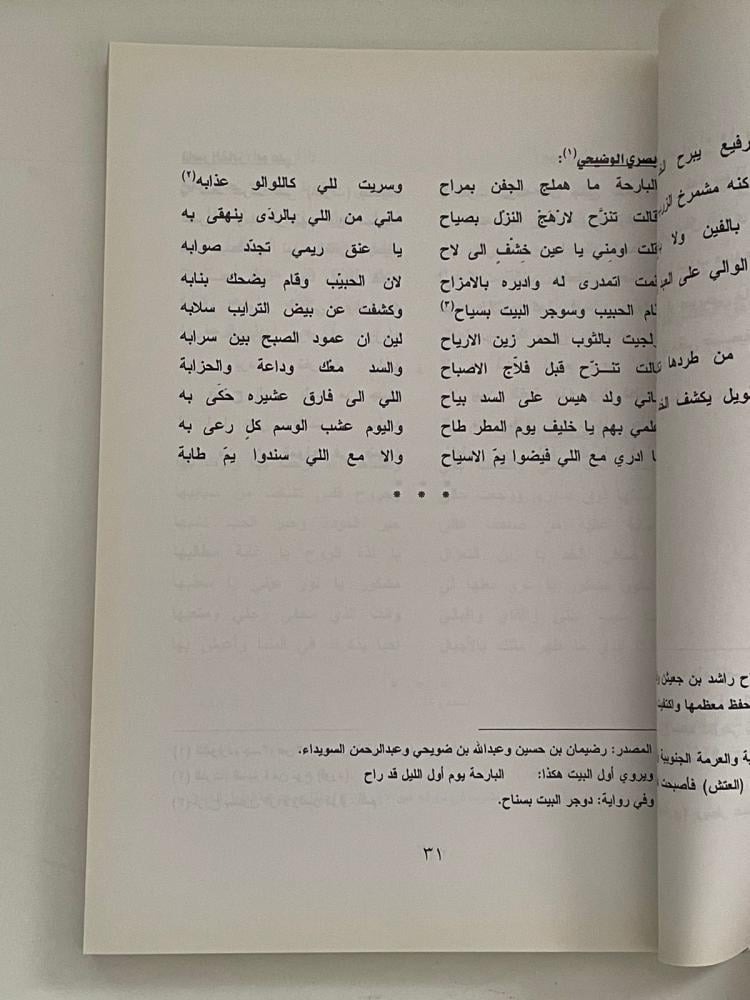 رفيع يبرح
كنه مشمرخ
بالفين ولا
الوالي على
من طردها
يكشف
راشد بن جعيثن
حفظ معظمها
والعرمة الجنوبية
(العتش) فأصبحت
بصري الوضيحي(١):
البارحة ما هملج الجفن بمراح وسريت للي كاللوالو عذابه(٢)
قالت تنزَّح لارْهَجَ النزل بصياح ماني من اللي بالردَى ينهقى به
قلت اومني يا عين خِشْفٍ الى لاح يا عنق ريمي تجدّد صوابه
اتمدرى له واديره بالامزاح لان الحبيّب وقام يضحك بنابه
نام الحبيب وسوجر البيت بسياح(٣) وكشفت عن بيض الترايب سلابه
ولجيت بالثوب الحمر زين الارياح لين ان عمود الصبح بين سرابه
قالت تنـزّح قبل فلاّج الاصباح والسد معْك وداعة والحزابة
ماني ولد هيس على السد بياح اللي الى فارق عشيره حَكَى به
علمي بهم يا خليف يوم المطر طاح واليوم عشب الوسم كلٍ رعى به
ما ادري مع اللي فيضوا يمّ الاسياح والا مع اللي سندوا يمّ طابة
* * *
المصدر: رضيمان بن حسين وعبدالله بن ضويحي وعبدالرحمن السويداء.
ويروي أول البيت هكذا: البارحة يوم أول الليل قد راح
وفي رواية: دوجر البيت بسناح.
٣١